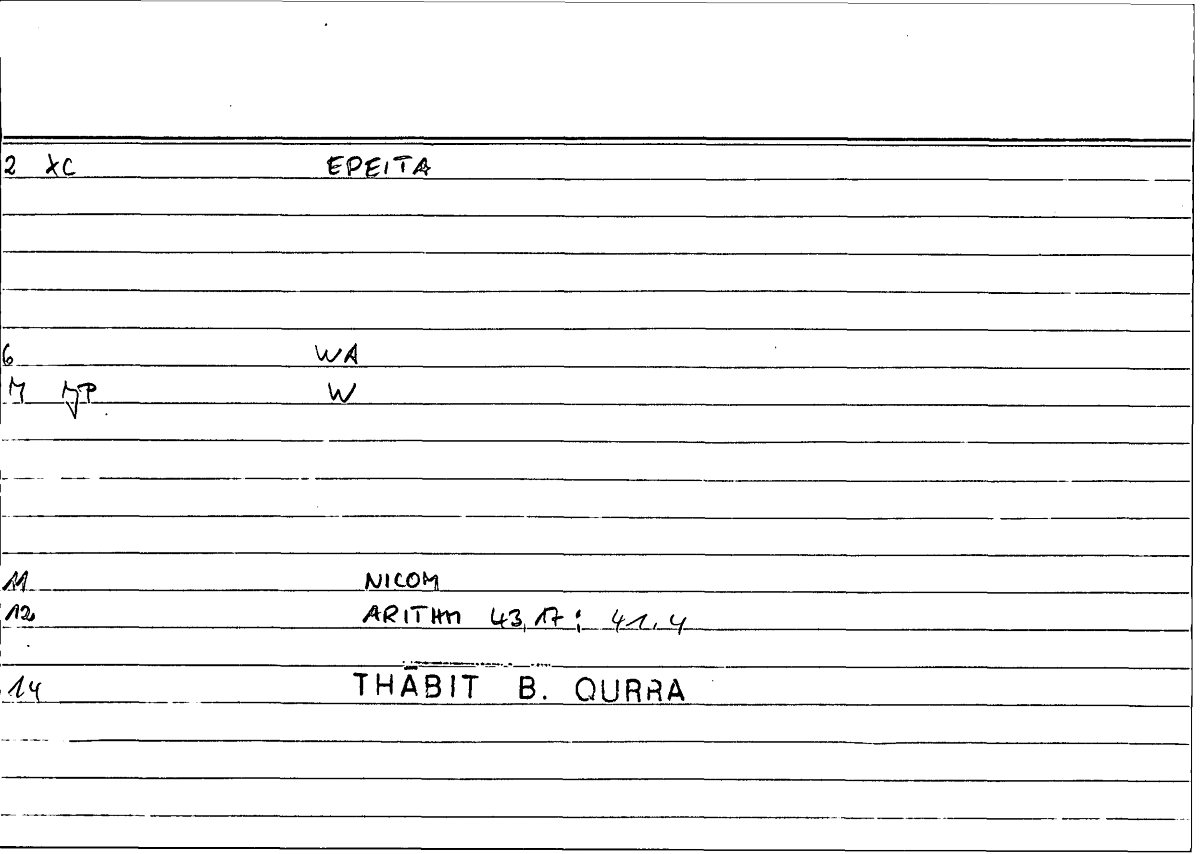 2 XC EPEITA
6 WA
W
11 NICOM
12 ARITHM 43,17; 41,4
14 THĀBIT B. QURRA